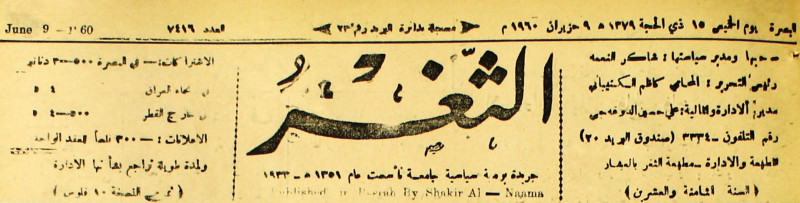 البصرة يوم الخميس ١٥ ذي الحجة ١٣٧٩ ه ٩ حزيران ١٩٦٠ م
مسجلة بدائرة البريد رقم ٢٣
العدد ٧٤١٦
June 9 – 1960
صاحبها ومدير سياستها: شاكر النعمه
رئيس التحرير: المحامي كاظم
مدير الادارة والمالية: علي حسين
رقم التلفون – ٣٣٣٤ (صندوق البريد ٢٠)
الطبعة والادارة – مطبعة الثغر بالعشار
(السنة الثامنة والعشرين)
الثَّغر
جريدة يومية سياسية جامعة تأسست عام ١٣٥١ ه – ١٩٣٣
Published in Basrah By Shakir Al – Naama
الاشتراكات: – في البصرة ٥٠٠ – ٣ دنانير
في انحاء العراق ٤
في خارج القطر ٥٠٠ – ٤
الاعلانات: – ٣٠٠ فلساً للعقد الواحد
ولمدة طويلة تراجع بشأنها الادارة
(ثمن النسخة ١٠ فلوس)